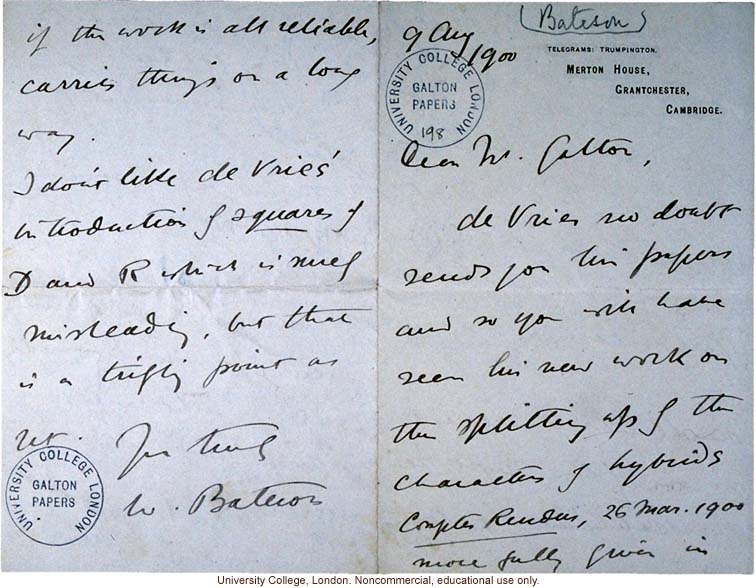 (Bateson)
9 Aug 1900
TELEGRAMS: TRUMPINGTON.
MERTON HOUSE,
GRANTCHESTER,
CAMBRIDGE.
UNIVERSITY COLLEGE LONDON
GALTON
PAPERS
198
Dear Mr. Galton,
de Vries no doubt
sends you his papers
and so you will have
seen his new work on
the splitting up of the
characters of hybrids
Comptes Rendus, 26 Mar. 1900
more fully given in
if the work is all reliable,
carries things on a long
way.
I don't like de Vries'
introduction of squares of
D and R which is
misleading, but that
is a trifling point as
yet.
W. Bateson
UNIVERSITY COLLEGE LONDON
GALTON
PAPERS
University College, London. Noncommercial, educational use only.